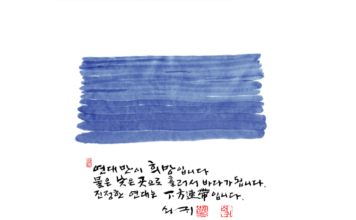 연대만이 희망입니다
물은 낮은 곳으로 흘러서 바다가 됩니다.
진정한 연대는 下方連帶입니다.